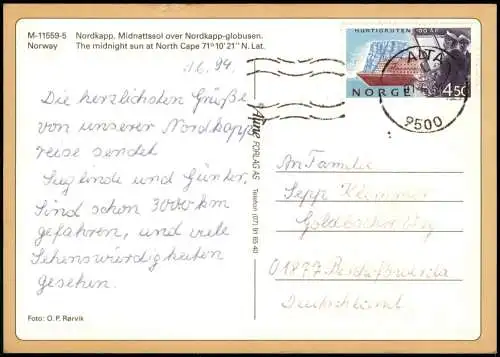 M-11559-5 Nordkapp, Midnattsol over Nordkapp-globusen.
Norway The midnight sun at North Cape 71°10'21" N. Lat.
HURTIGRUTEN 100 ÅR
NORGE 450
ALTA
9500
1.6.94.
Die herzlichsten Grüße
von unserer Nordkapp
reise sendet
Sieglinde und Günter.
Sind schon 3000 km
gefahren, und viele
Sehenswürdigkeiten
gesehen.
Aune FORLAG AS Telefon (07) 91 65 40
An Familie
Sepp
01877 Bischofswerda
Deutschland
Foto: O. P. Rørvik